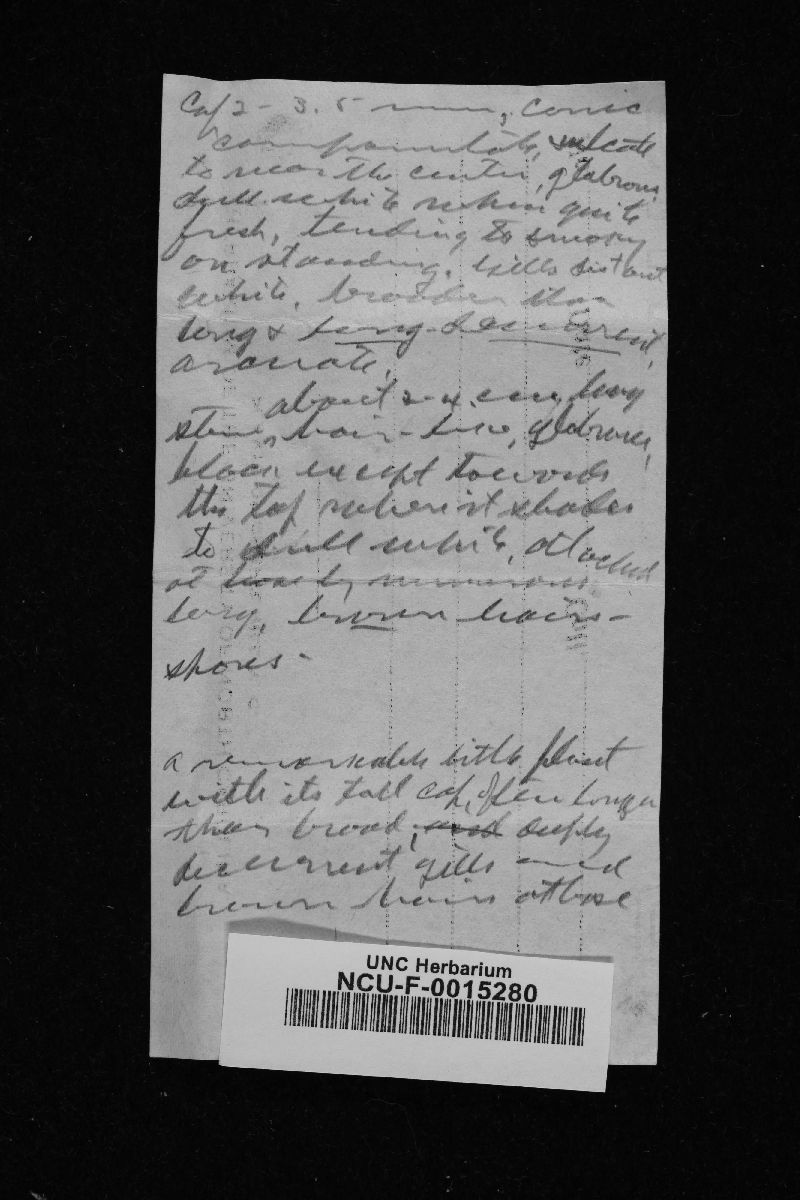 Cap 2 - 3.5 mm, conic
campanulate, sulcate
to near the center, glabrous
dull white when quite
fresh, tending to smoky
on standing. Gills distant
white, broader than
long & long-decurrent,
arcuate.
about 2-4 cm. long
stem, hair-like, glabrous,
black except towards
the top where it shades
to dull white, attached
at base by numerous
long, brown hairs -
spores -
a remarkable little plant
with its tall cap, often longer
than broad, and deeply
decurrent gills and
brown hairs at base
UNC Herbarium
NCU-F-0015280